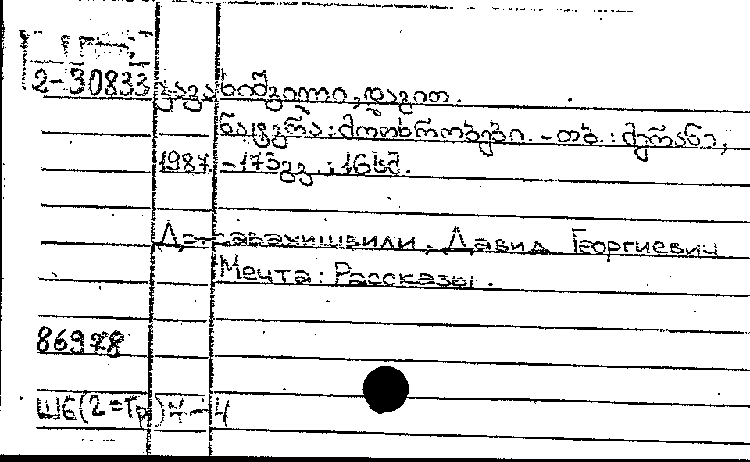 2-30833 ჯავახიშვილი, დავით.
ნატვრა: მოთხრობები. - თბ.: მერანი,
1987 - 173გვ.; 16სმ.
Джавахишвили, Давид Георгиевич
Мечта: Рассказы.
86978
Ш6(2=Гр)7-4